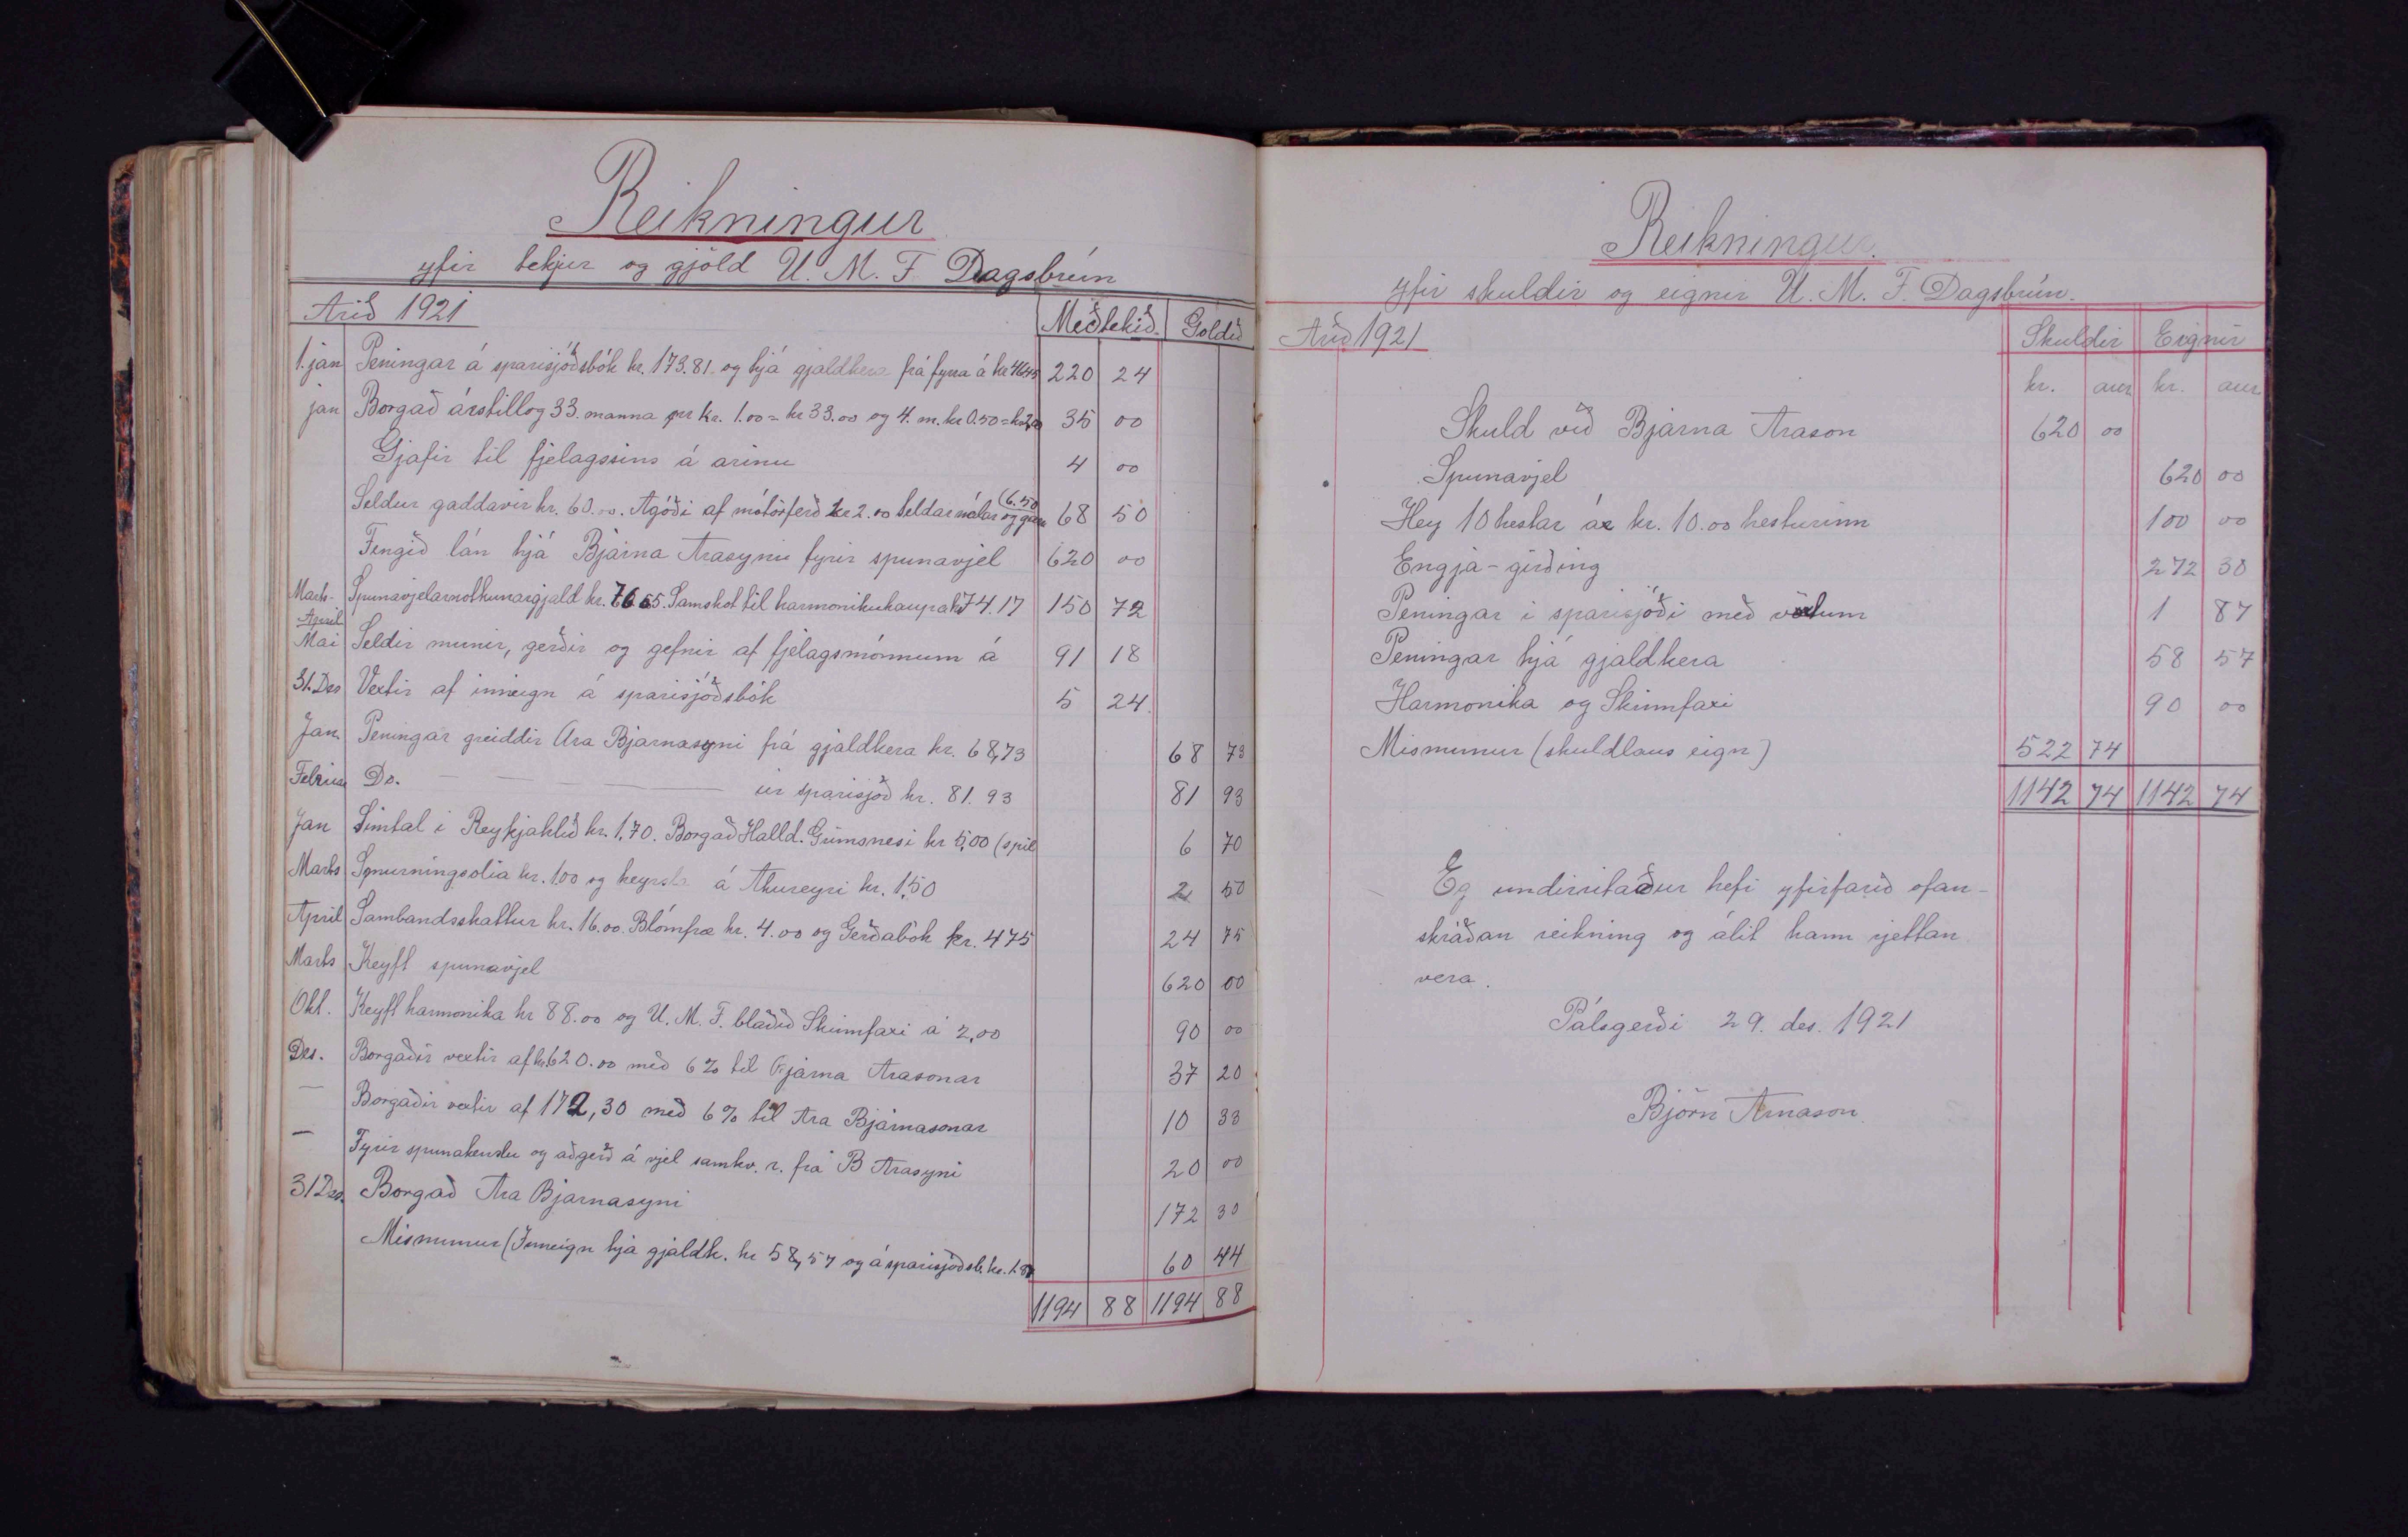 Reikningur
yfir tekjur og gjöld U. M. F. Dagsbrún
Árið 1921 Meðtekið. Goldið
1. jan Peningar á sparisjóðsbók kr. 173.81 og hjá gjaldkera frá fyrra á kr 46.45 220 24
jan Borgað árstillog 33. manna per kr. 1.00 = kr 33.00 og 4. m. kr 0.50 = kr 2,00 35 00
Gjafir til fjelagssins á arinu 4 00
Seldur gaddavír kr. 60.00. Agóði af mótorferð kr 2.00 seldar nálar og garn (6.50 68 50
Fengið lán hjá Bjarna Arasyni fyrir spunavjel 620 00
Marts - Spunavjelarnotkunargjald kr. 76.55. Samskot til harmonikukaupa kr 74.17 150 72
Apríl
Mai Seldir munir, gerðir og gefnir af fjelagsmönnum á 91 18
31. Des Vextir af inneign á sparisjóðsbók 5 24
Jan. Peningar greiddir Ara Bjarnasyni frá gjaldkera kr. 68,73 68 73
Febrúar Do. — — — úr sparisjóð kr. 81.93 81 93
Jan Símtal í Reykjahlíð kr. 1,70. Borgað Halld. Grímsnesi kr 5,00 (spil 6 70
Marts Smurningsolia kr. 1.00 og keyrsla á Akureyri kr. 1,50 2 50
April Sambandsskattur kr. 16.00. Blómfræ kr. 4.00 og Gerðabók kr. 4 75 24 75
Marts Keyft spunavjel 620 00
Okt. Keyft harmonika kr 88.00 og U. M. F. blaðið Skinnfaxi á 2,00 90 00
Des. Borgaðir vextir af kr. 620.00 með 6% til Bjarna Arasonar 37 20
— Borgaðir vextir af 172,30 með 6% til Ara Bjarnasonar 10 33
— Fyrir spunakenslu og aðgerð á vjel samkv. r. frá B Arasyni 20 00
31 Des. Borgað Ara Bjarnasyni 172 30
Mismunur (Inneign hjá gjaldk. kr 58,57 og á sparisjóðsb. kr. 1.87 60 44
1194 88 1194 88
Reikningur.
yfir skuldir og eignir U. M. F. Dagsbrún.
Árið 1921 Skuldir Eignir
kr. aur kr. aur
Skuld við Bjarna Arason 620 00
Spunavjel 620 00
Hey 10 hestar á kr. 10.00 hesturinn 100 00
Engja-girðing 272 30
Peningar í sparisjóði með vöxtum 1 87
Peningar hjá gjaldkera 58 57
Harmonika og Skinnfaxi 90 00
Mismunur (skuldlaus eign) 522 74
1142 74 1142 74
Eg undirritaður hefi yfirfarið ofan-
skráðan reikning og álit hann rjettan
vera.
Pálsgerði 29. des. 1921
Björn Arnason.